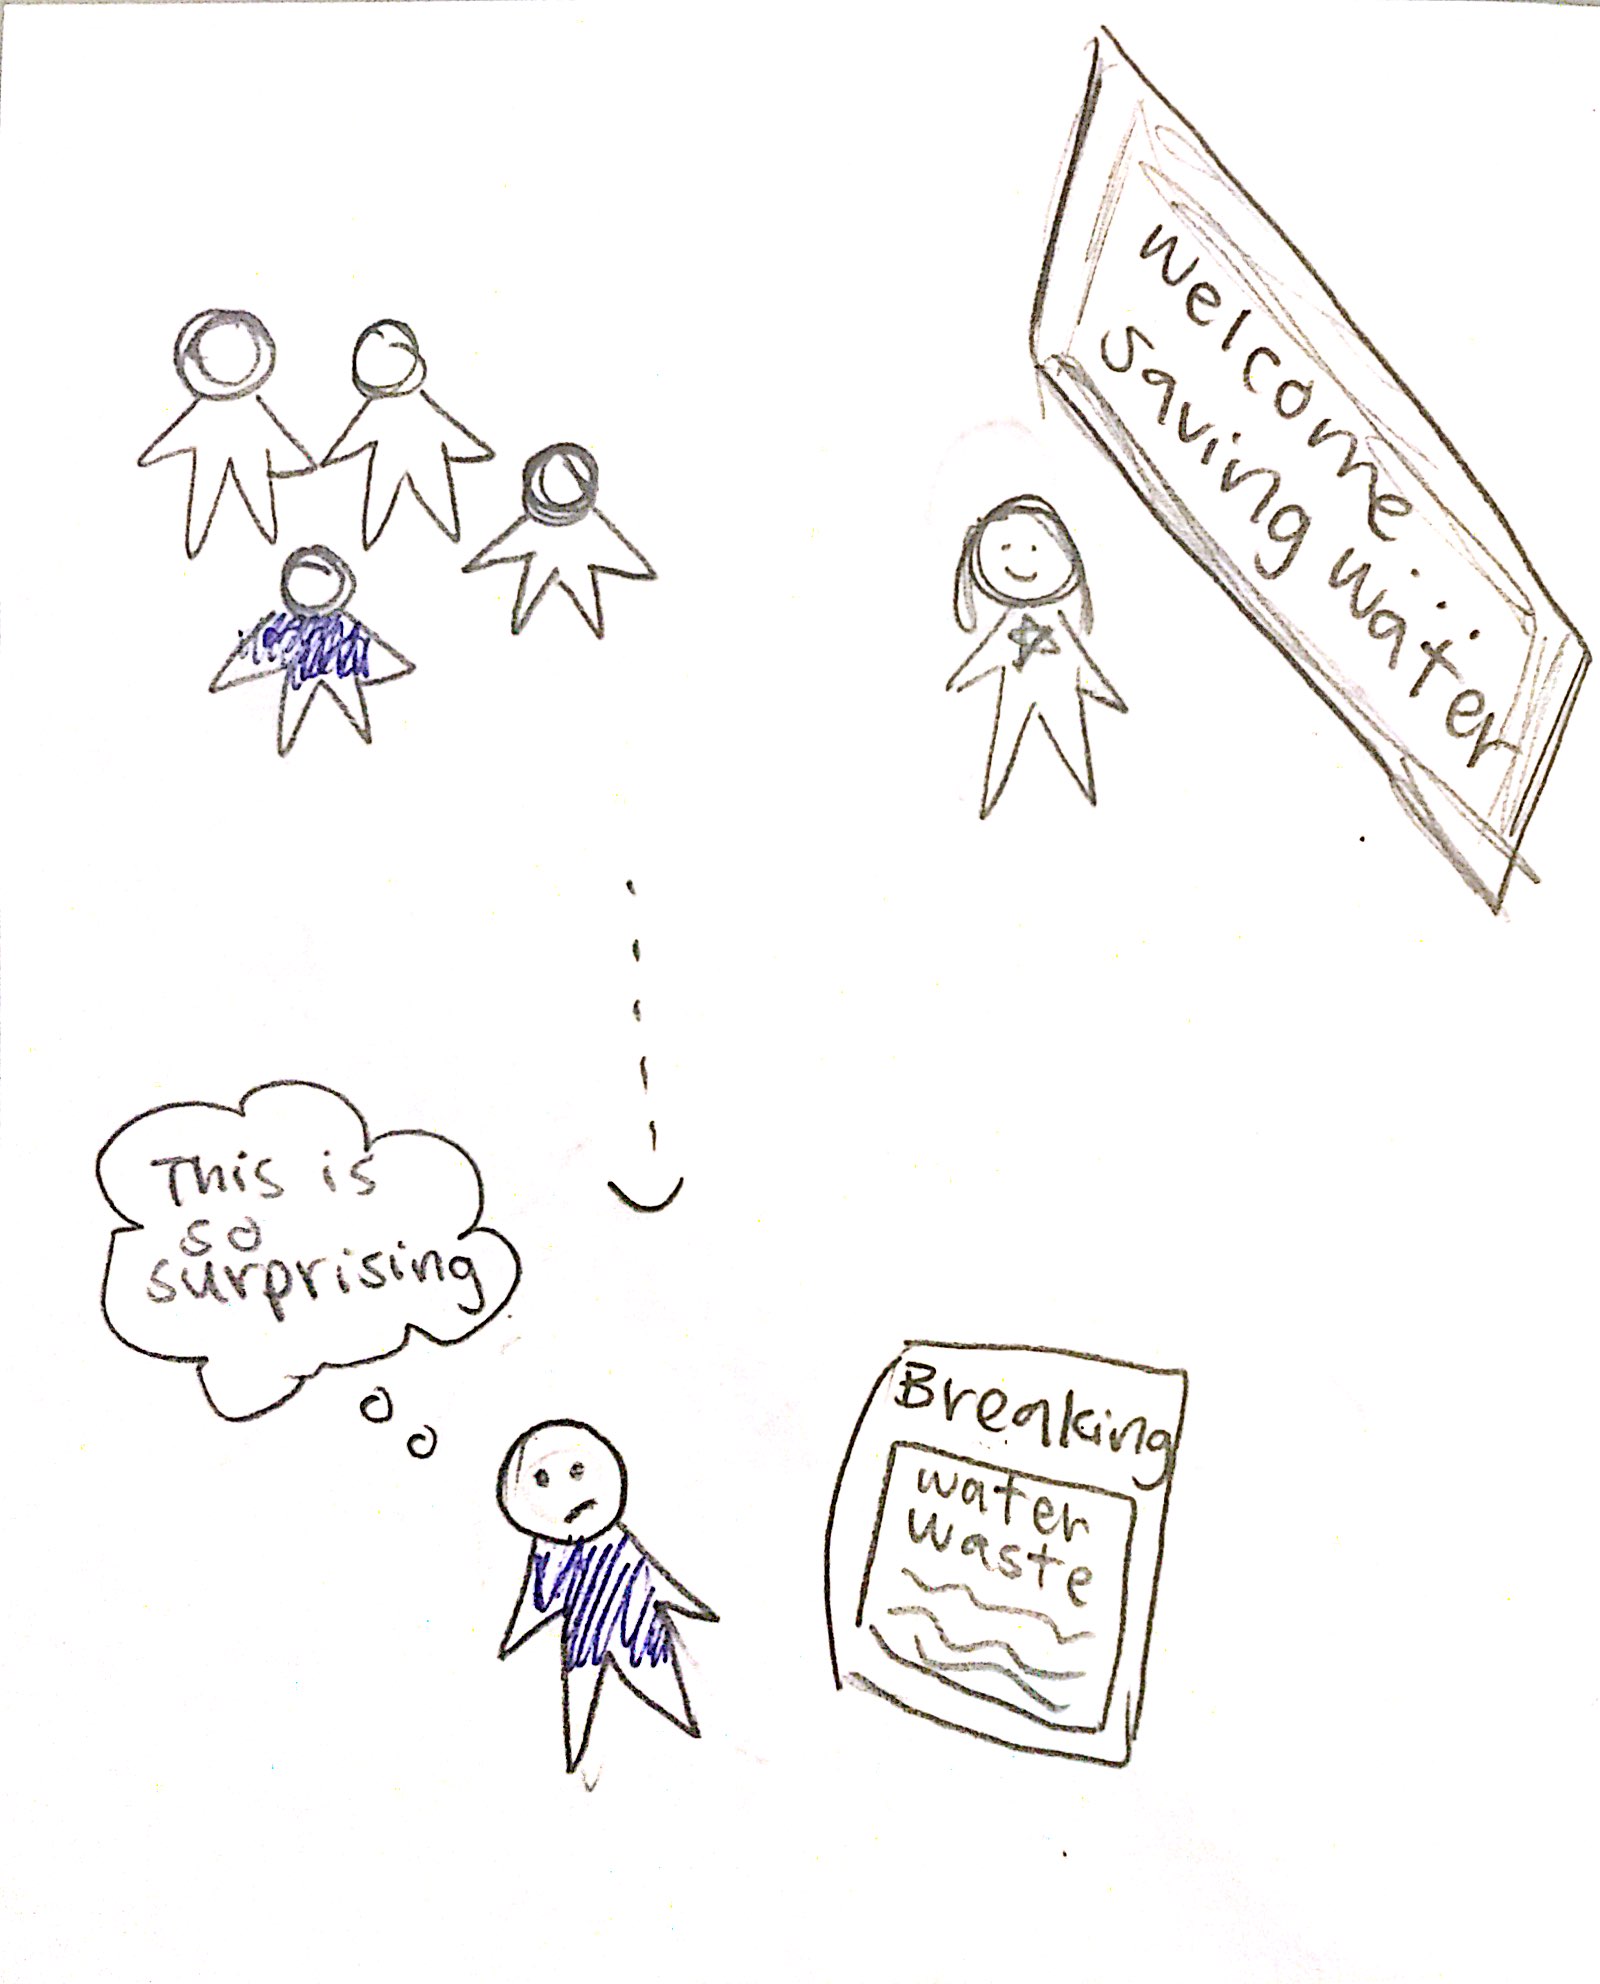 Welcome...
Saving water
This is
so
surprising
Breaking
water
waste